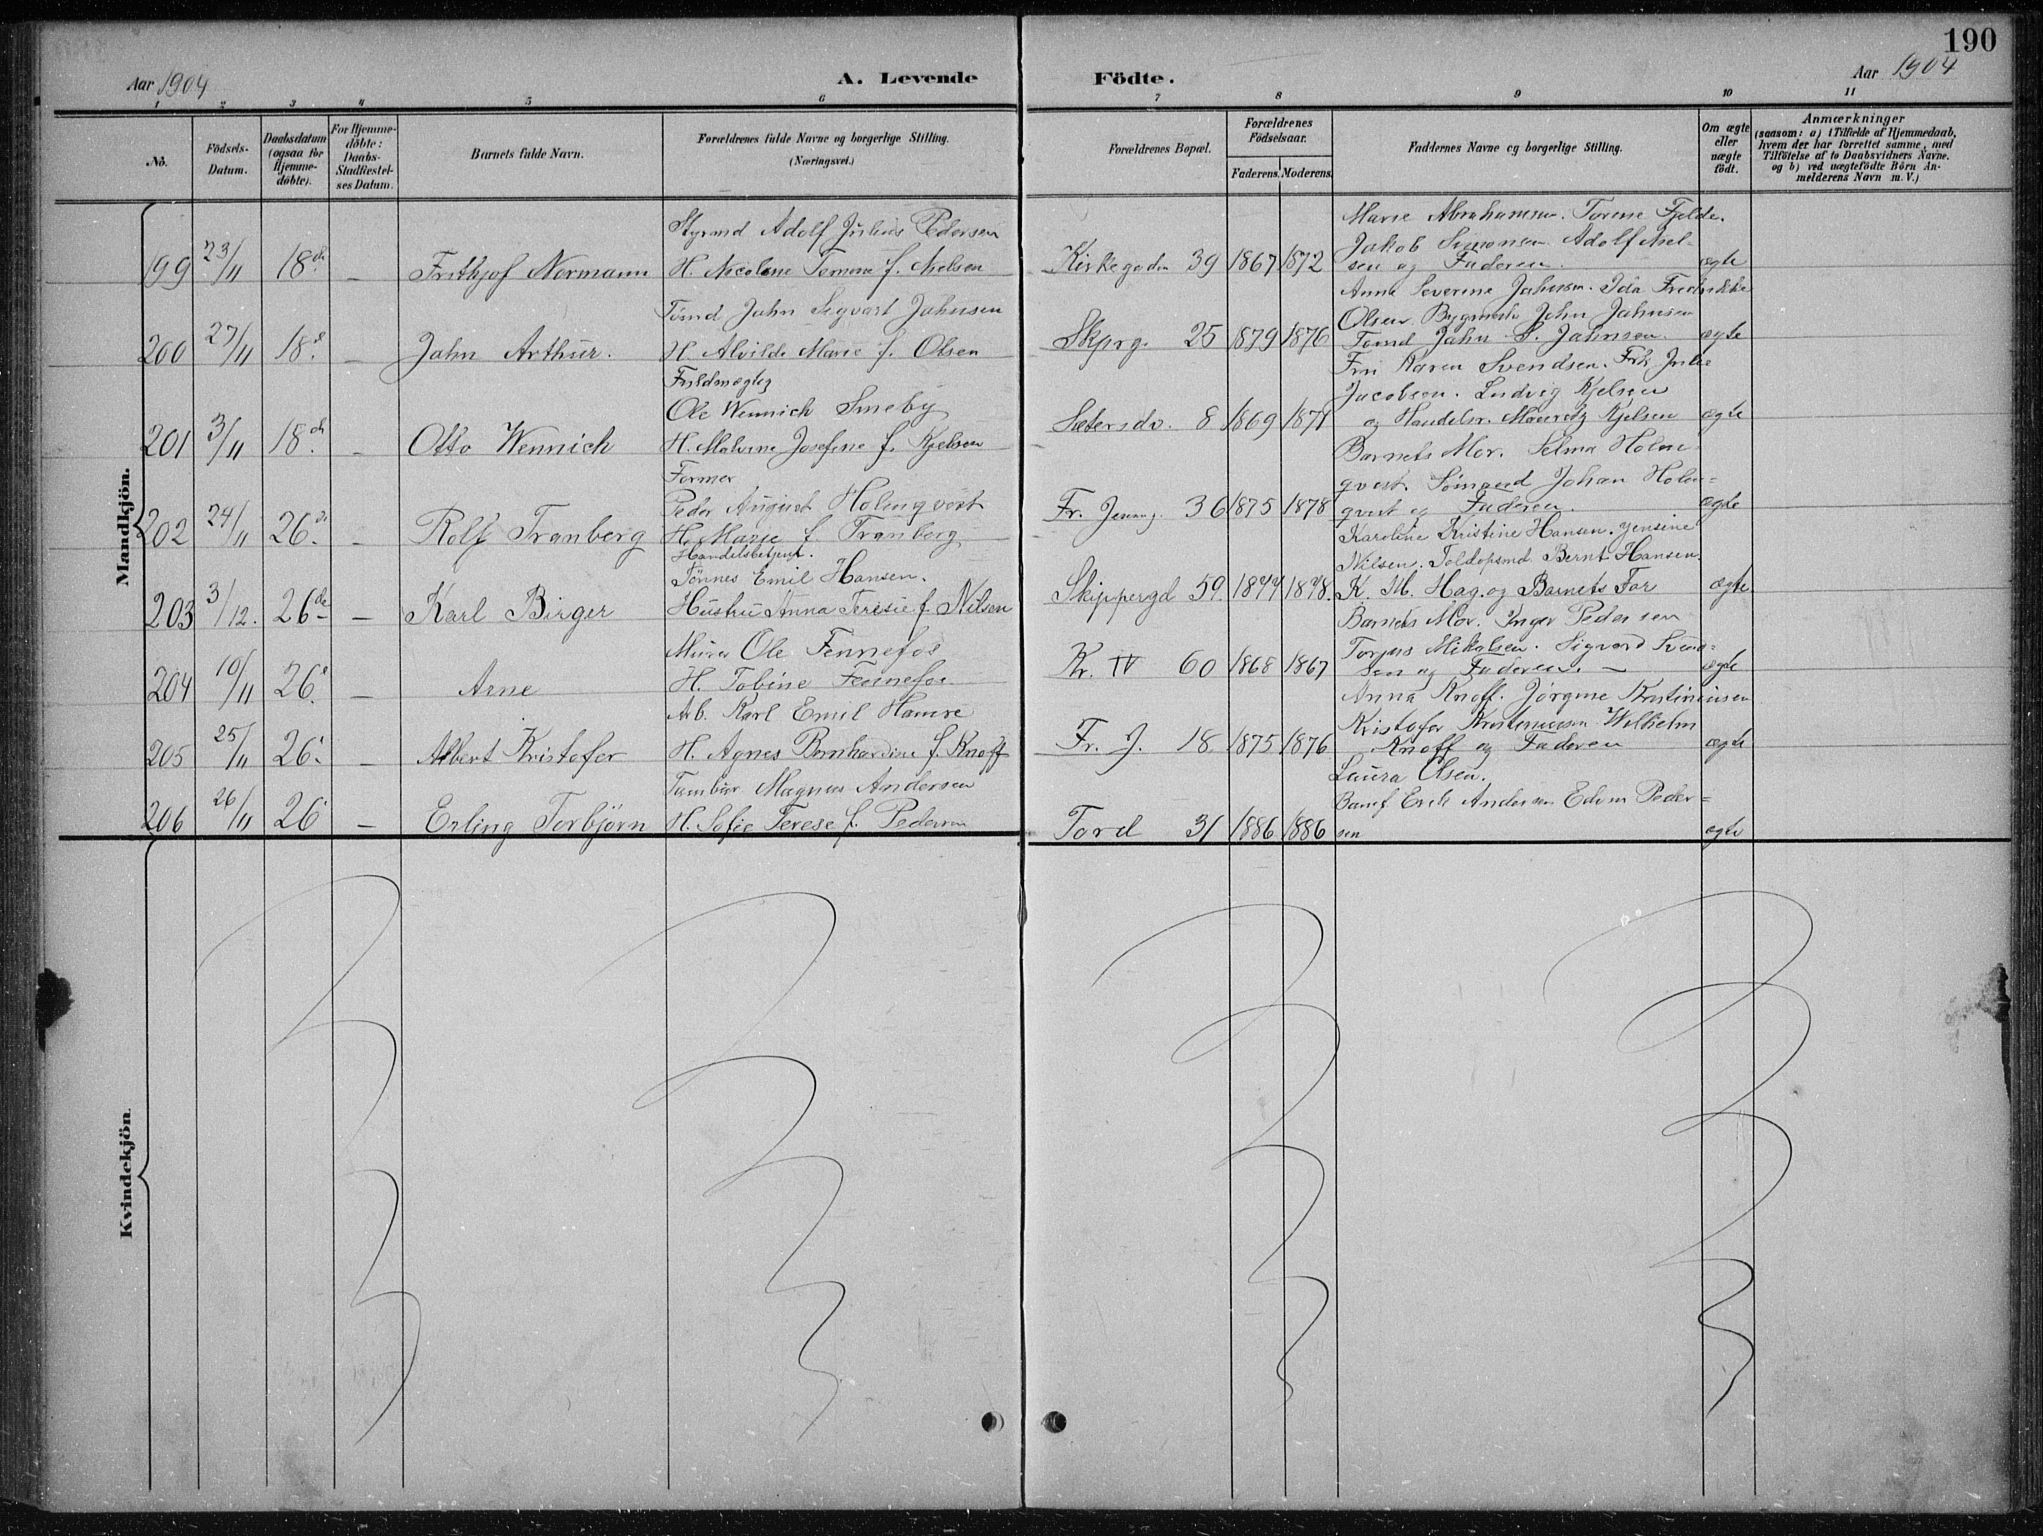 190
Aar 1904
A. Levende
Födte.
Aar 1904
1 2 3 4 5 6 7 8 9 10 11
No.
Födsels-Datum.
Daabsdatum (ogsaa for Hjemme-döbte).
For Hjemme-döbte: Daabs-Stadfæstel-ses Datum.
Barnets fulde Navn.
Forældrenes fulde Navne og borgerlige Stilling. (Næringsvei.)
Forældrenes Bopæl.
Forældrenes Födselsaar.
Faderens. Moderens.
Faddernes Navne og borgerlige Stilling.
Om ægte eller uægte födt.
Anmærkninger
(saasom: a) i Tilfælde af Hjemmedaab, hvem der har forrettet samme, med Tilföielse af to Daabsvidners Navne. og b) ved uægtefödte Börn An-melderens Navn m. V.)
Mandkjön.
Styrmd Adolf Julius Pedersen
Marie Abrahamsen. Torene Fjelde.
Jakob Simonsen. Adolf Niel-
199 23/11 18de — Frithjof Normann H. Nicoline Temine f. Nielsen Kirkegaden 39 1867 1872 sen og Faderen. ægte
Tømd John Sigvart Jahnsen
Anna Severine Jahnsen. Ida Fredrikke
Olsen. Bygmstr John Jahnsen
200 27/11 18d. — John Arthur. H. Alvilde Marie f. Olsen Skprg. 25 1879 1876 Tømd John S. Jahnsen. ægte
Fuldmægtig
Fru Karen Svendsen. Frk Julie
Ole Wennich Smeby
Jacobsen. Ludvig Kjelsen
201 3/11 18de — Otto Wennich H. Malvine Josefine f. Kjelsen Setersdv. 8 1869 1871 og Handelsr. Mauritz Kjelsen ægte
Former
Barnets Mor. Selma Holm-
Peder August Holmqvist
qvist. Sömand Johan Holm=
202 24/11 26de — Rolf Tranberg H. Marie f. Tranberg Fr. Jensensg. 36 1875 1878 qvist og Faderen. ægte
Handelsbetjent.
Karoline Kristine Hansen. Jensine
Tönnes Emil Hansen.
Nilsen. Toldopsmd Bernt Hansen.
203 3/12. 26de — Karl Birger Hustru Anna Teresie f. Nilsen Skippergd 59. 1844 1848. K. M. Hag. og Barnets Far ægte
Barnets Mor. Inger Pedersen
Murer Ole Fennefos
Torjus Mikalsen. Sigvard Svend=
204 10/11 26. — Arne H. Tobine Fennefos Kr. IV 60 1868 1867 sen og Faderen. — ægte
Arb. Karl Emil Hamre
Anna Knoff. Jörgine Kristiansen
Kristofer Kristensen Wilhelm
205 25/11 26. — Albert Kristofer H. Agnes Bernhardine f. Knoff Fr. J. 18 1875 1876 Knoff og Faderen ægte
Tambur Magnus Andersen
Laura Olsen.
Andersen Edvin Peder=
206 26/11 26 — Erling Torbjørn H. Sofie Terese f. Pedersen Tord 31 1886 1886 sen ægte
Kvindekjön.